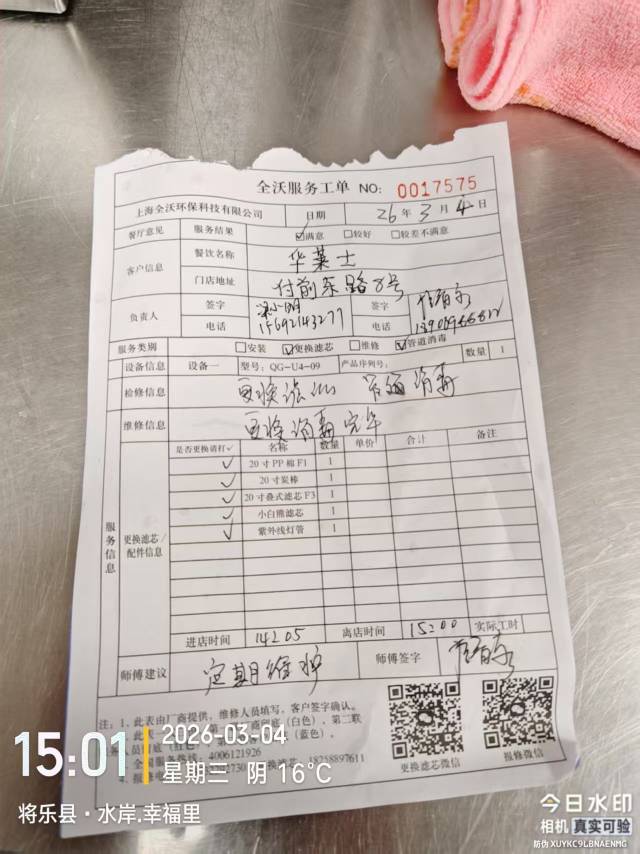 全沃服务工单 NO: 0017575
上海全沃环保科技有限公司 日期 26年3月4日
餐厅意见 服务结果 ☑满意 □较好 □较差不满意
客户信息 餐饮名称 华莱士
门店地址 付前东路8号
负责人 签字 签字
电话 15692143277 电话
服务类别 □安装 ☑更换滤芯 □维修 ☑管道消毒
设备信息 设备一 型号: QG-U4-09 产品序列号: 数量 1
检修信息 更换滤芯 管道消毒
维修信息 更换消毒完毕
服务信息 更换滤芯/配件信息 是否更换请打✓ 名称 数量 单价 合计 备注
✓ 20寸PP棉F1 1
✓ 20寸炭棒 1
✓ 20寸叠式滤芯F3 1
✓ 小白熊滤芯 1
✓ 紫外线灯管 1
进店时间 14:05 离店时间 15:00 实际工时
师傅建议 定期维护 师傅签字
注: 1、此表由厂商提供,维修人员填写,客户签字确认。
(白色)、第二联
(红色) (蓝色)。
全国服务热线: 4006121926
18758897611
更换滤芯微信 报修微信
15:01 2026-03-04
星期三 阴 16℃
将乐县·水岸.幸福里
今日水印
相机 真实可验
防伪 XUYKC9LBNAENMG